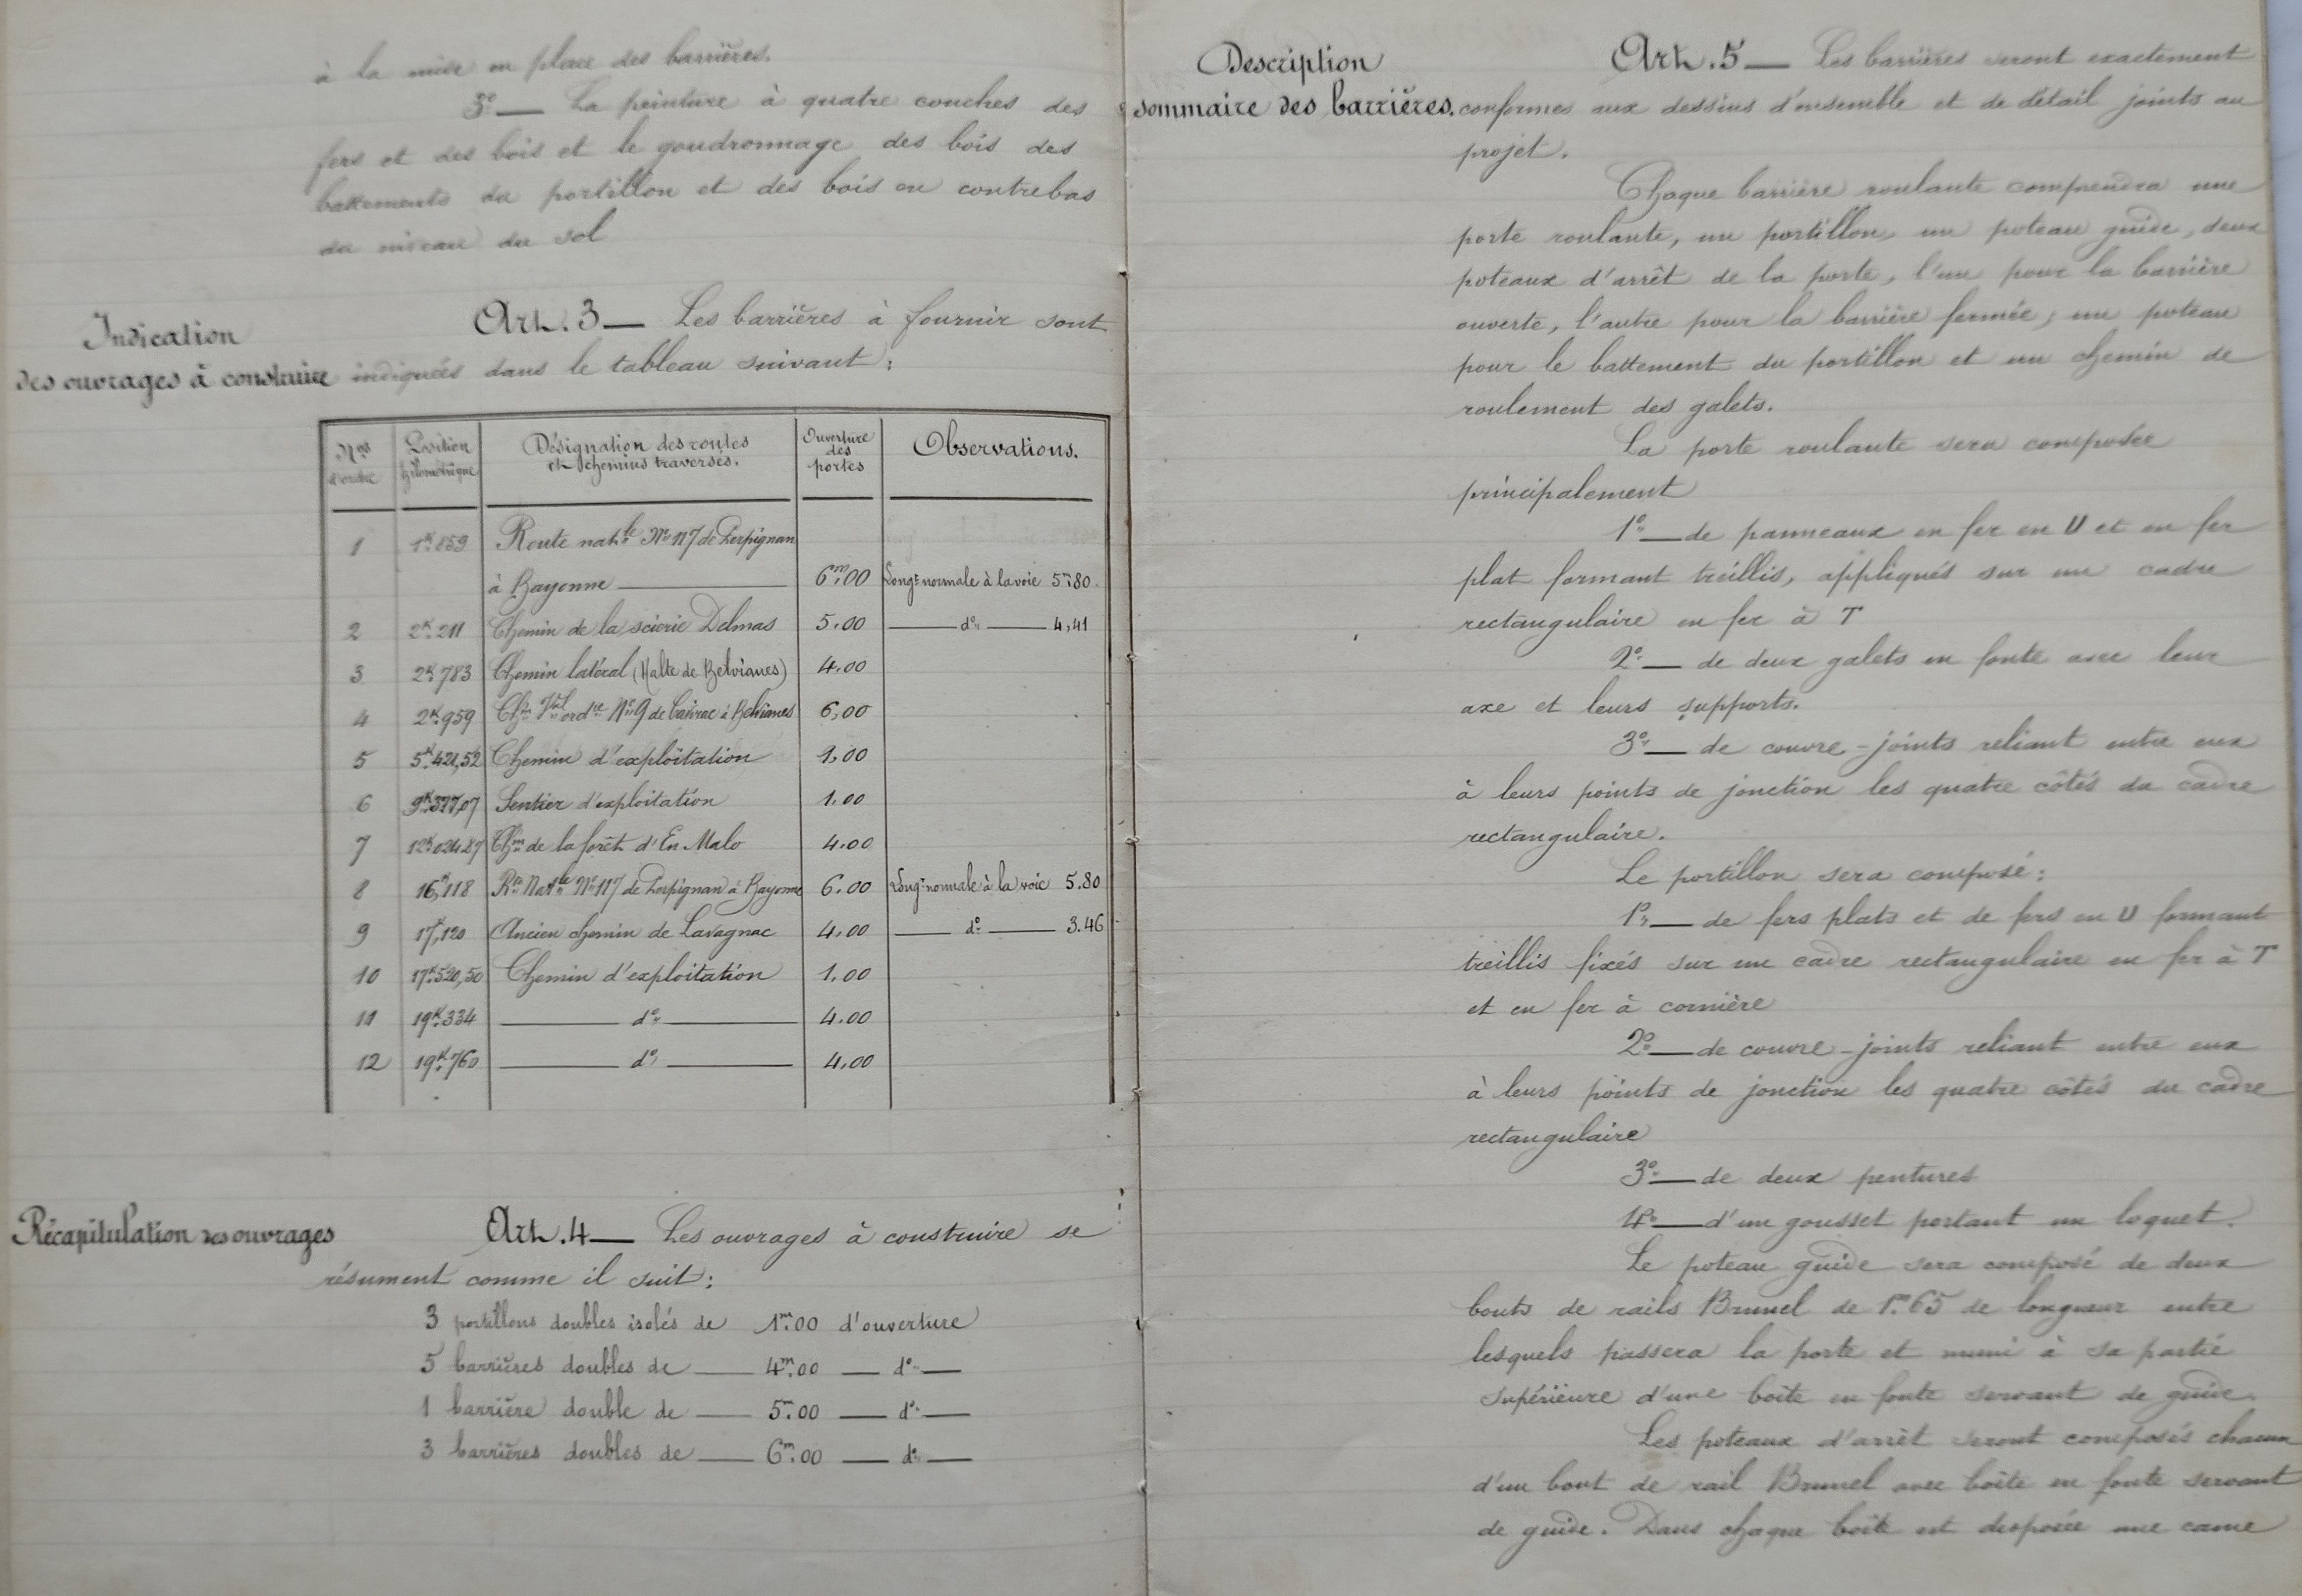 à la mise en place des barrières.
3º — La peinture à quatre couches des
fers et des bois et le goudronnage des bois des
battements du portillon et des bois en contrebas
du niveau du sol
Indication
des ouvrages à construire
Art. 3 — Les barrières à fournir sont
indiquées dans le tableau suivant :
Nos d'ordre | Position kilométrique | Désignation des routes et chemins traversés. | Ouverture des portes | Observations.
1 | 1K.859 | Route natle Nº 117 de Perpignan
à Bayonne — | 6m,00 | Longr normale à la voie 5m,80.
2 | 2K.211 | Chemin de la scierie Delmas | 5.00 | — dº — 4,41
3 | 2K.783 | Chemin latéral (Halte de Belvianes) | 4.00
4 | 2K.959 | Chin Val ordre Nº 9 de Cavirac à Belvianes | 6,00
5 | 5K.421,52 | Chemin d'exploitation | 1,00
6 | 9K.377,07 | Sentier d'exploitation | 1.00
7 | 12K.024.87 | Chin de la forêt d'En Malo | 4.00
8 | 16K,118 | Rte Natle Nº 117 de Perpignan à Bayonne | 6.00 | Longr normale à la voie 5.80
9 | 17,120 | Ancien chemin de Lavagnac | 4,00 | — dº — 3.46
10 | 17K.520,50 | Chemin d'exploitation | 1.00
11 | 19K.334 | — dº — | 4.00
12 | 19K.760 | — dº — | 4,00
Récapitulation des ouvrages
Art. 4 — Les ouvrages à construire se
résument comme il suit :
3 portillons doubles isolés de 1m.00 d'ouverture
5 barrières doubles de — 4m.00 — dº —
1 barrière double de — 5m.00 — dº —
3 barrières doubles de — 6m.00 — dº —
Description
sommaire des barrières.
Art. 5 — Les barrières seront exactement
conformes aux dessins d'ensemble et de détail joints au
projet.
Chaque barrière roulante comprendra une
porte roulante, un portillon, un poteau guide, deux
poteaux d'arrêt de la porte, l'un pour la barrière
ouverte, l'autre pour la barrière fermée, un poteau
pour le battement du portillon et un chemin de
roulement des galets.
La porte roulante sera composée
principalement
1º — de panneaux en fer en U et en fer
plat formant treillis, appliqués sur un cadre
rectangulaire en fer à T
2º — de deux galets en fonte avec leur
axe et leurs supports.
3º — de couvre-joints reliant entre eux
à leurs points de jonction les quatre côtés du cadre
rectangulaire.
Le portillon sera composé :
1º — de fers plats et de fers en U formant
treillis fixés sur un cadre rectangulaire en fer à T
et en fer à cornière
2º — de couvre-joints reliant entre eux
à leurs points de jonction les quatre côtés du cadre
rectangulaire
3º — de deux pentures
4º — d'un gousset portant un loquet.
Le poteau guide sera composé de deux
bouts de rails Brunel de 1m.65 de longueur entre
lesquels passera la porte et muni à sa partie
supérieure d'une boîte en fonte servant de guide.
Les poteaux d'arrêt seront composés chacun
d'un bout de rail Brunel avec boîte en fonte servant
de guide. Dans chaque boîte est disposée une came